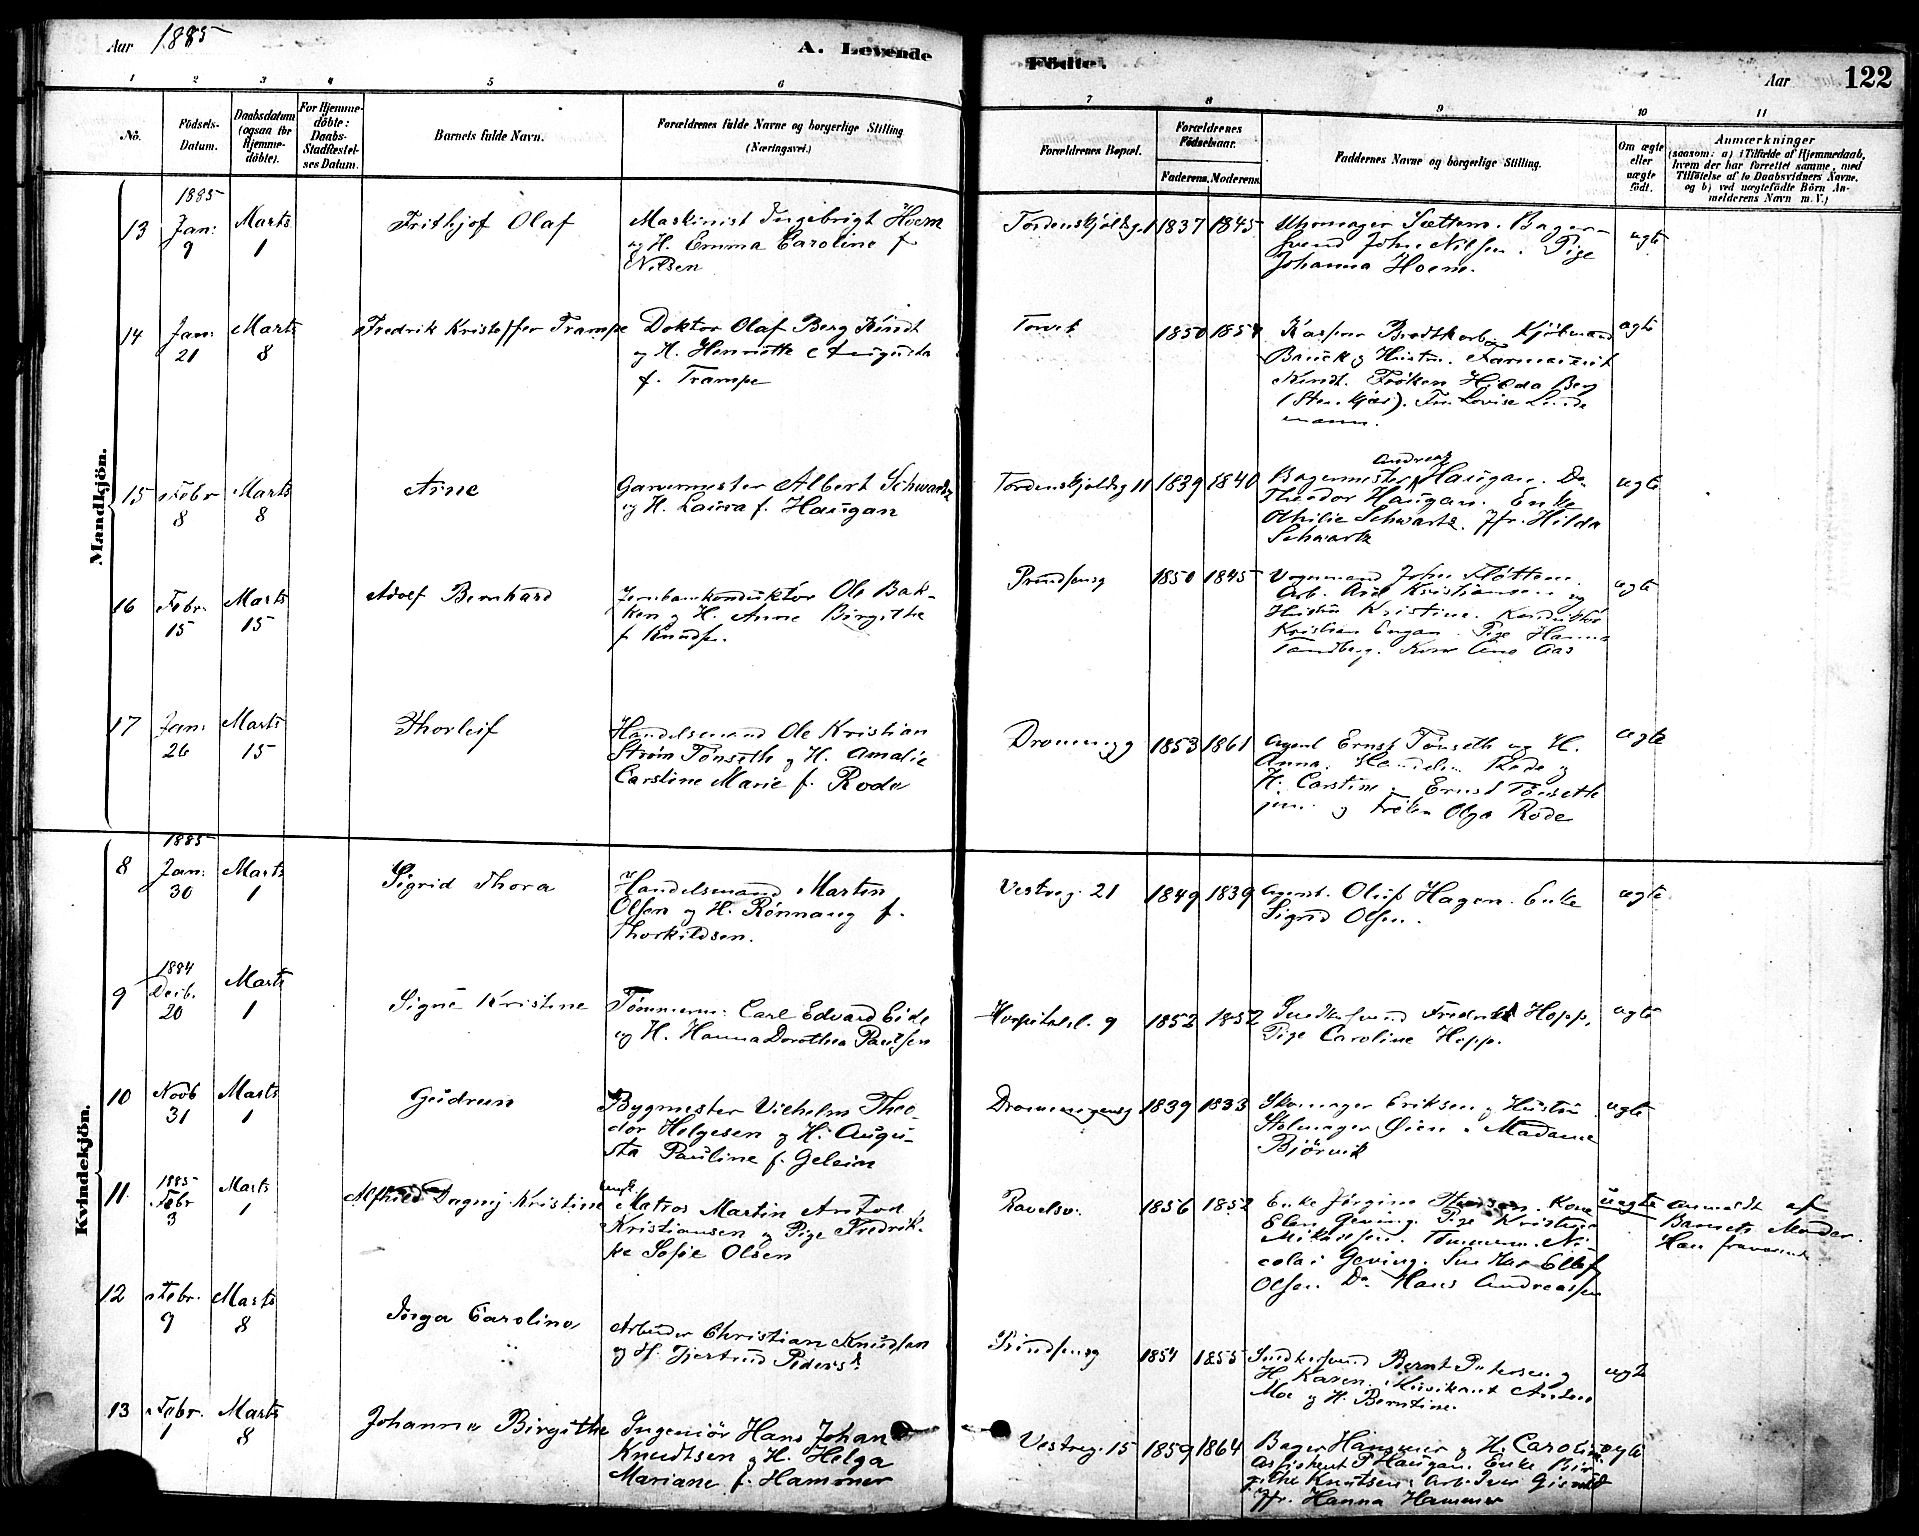 Aar 1885
A. Levende
Fødte.
Aar 122
1 2 3 4 5 6 7 8 9 10 11
No. Fødsels-Datum. Daabsdatum (ogsaa for Hjemmedøbte). For Hjemmedøbte: Daabs-Stadfæstelses Datum. Barnets fulde Navn. Forældrenes fulde Navne og borgerlige Stilling (Næringsvei.) Forældrenes Bopæl. Forældrenes Fødselsaar. Faderens. Moderens. Faddernes Navne og borgerlige Stilling. Om ægte eller uægte født. Anmærkninger (saasom: a) i Tilfælde af Hjemmedaab, hvem der har forrettet samme, med Tilføielse af to Daabsvidners Navne, og b) ved uægtefødte Børn Anmelderens Navn m. V.)
Mandkjön.
1885
13 Jan: 9 Marts 1 Frithjof Olaf
Maskinist Ingebrigt Hoem
og H. Emma Caroline f
Nilsen
Tordenskjoldsg. 1 1837 1845
Uhrmager Sættem. Bager-
svend John Nilsen. Pige
Johanna Hoem.
ægte
14 Jan: 21 Marts 8 Fredrik Kristoffer Trampe
Doktor Olaf Berg Kindt
og H. Henriette Augusta
f. Trampe
Torvet 1850 1854
Kaspar Brodtkorb Kjøbmand
og Hustru. Farmaceut
Kindt. Frøken Hilda Berg
(Stenkjær). Frk Lovise Linde
mann.
ægte
15 Febr 8 Marts 8 Arne
Garvermester Albert Schwartz
og H. Laura f. Haugan
Tordenskjoldsg 11 1839 1840
Andreas
Bagermester Haugan. Do
Theodor Haugan. Enke
Othilie Schwartz. Jfr. Hilda
Schwartz
ægte
16 Febr. 15 Marts 15 Adolf Bernhard
Jernbanekonduktør Ole Bak-
ken og H. Anne Birgithe
f. Knuds.
Prindsensg 1850 1845
Vognmand John Fløttem.
Arb. Kristiansen og
Hustru Kristine. Konduktør
Kristian Engan. Pige Hanna
Tandberg. Kone Aas
ægte
17 Jan: 26 Marts 15 Thorleif
Handelsmand Ole Kristian
Strøm Tønseth og H. Amalie
Carstine Marie f. Rode
Dronningg 1853 1861
Agent Ernst Tønseth og H.
Anna. Handelsm Rode og
H. Carstine. Ernst Tønseth
jun. og Frøken Olga Rode
ægte
Kvindekjön.
1885
8 Jan: 30 Marts 1 Sigrid Thora
Handelsmand Martin
Olsen og H. Rønnaug f.
Thorkildsen.
Vestreg. 21 1849 1839
Agent. Oluf Hagen. Enke
Sigrid Olsen.
ægte
1884
9 Decb. 20 Marts 1 Signe Kristine
Tømmerm: Carl Edvard Eide
og H. Hanna Dorothea Paulsen
Hospitalsl. 9 1852 1852
Snedkersvend Fredrik Hopp.
Pige Caroline Hopp.
ægte
10 Novb 31 Marts 1 Gudrun
Bygmester Vilhelm Theo-
dor Helgesen og H. Augu-
sta Pauline f. Gelein
Dronningensg 1839 1833
Skomager Eriksen og Hustru
Stolmager Øien. Madame
Bjørvik
ægte
1885
11. Febr 3 Marts 1 Alfhild Dagny Kristine
Matros Martin Anton
Kristiansen og Pige Fredrik-
ke Sofie Olsen
Ravelsv. 1856 1852
Enke Jørgine. Kone
Elen Geving. Pige Kristine
Mikkelsen. Tømmerm. Ni-
colai Geving. Snedker Ellef
Olsen Do Hans Andreassen
uægte
Anmeldt af
Barnets Moder.
Han fraværende
12 Febr. 9 Marts 8 Inga Caroline
Arbeider Christian Knudsen
og H. Gjertrud Peders.
Prindsensg 1854 1855
Snedkersvend Bernt Petersen og
H. Karen. Musikant Anders
Moe og H. Berntine.
ægte
13 Febr. 1 Marts 8 Johanna Birgithe
Ingeniør Hans Johan
Knudtsen og H. Helga
Mariane f. Hammer
Vestreg. 15 1859 1864
Bager Hammer og H. Caroline
Assistent P. Haugan. Enke Bir-
githe Knutsen. Arb. Iver
Jfr. Hanna Hammer
ægte